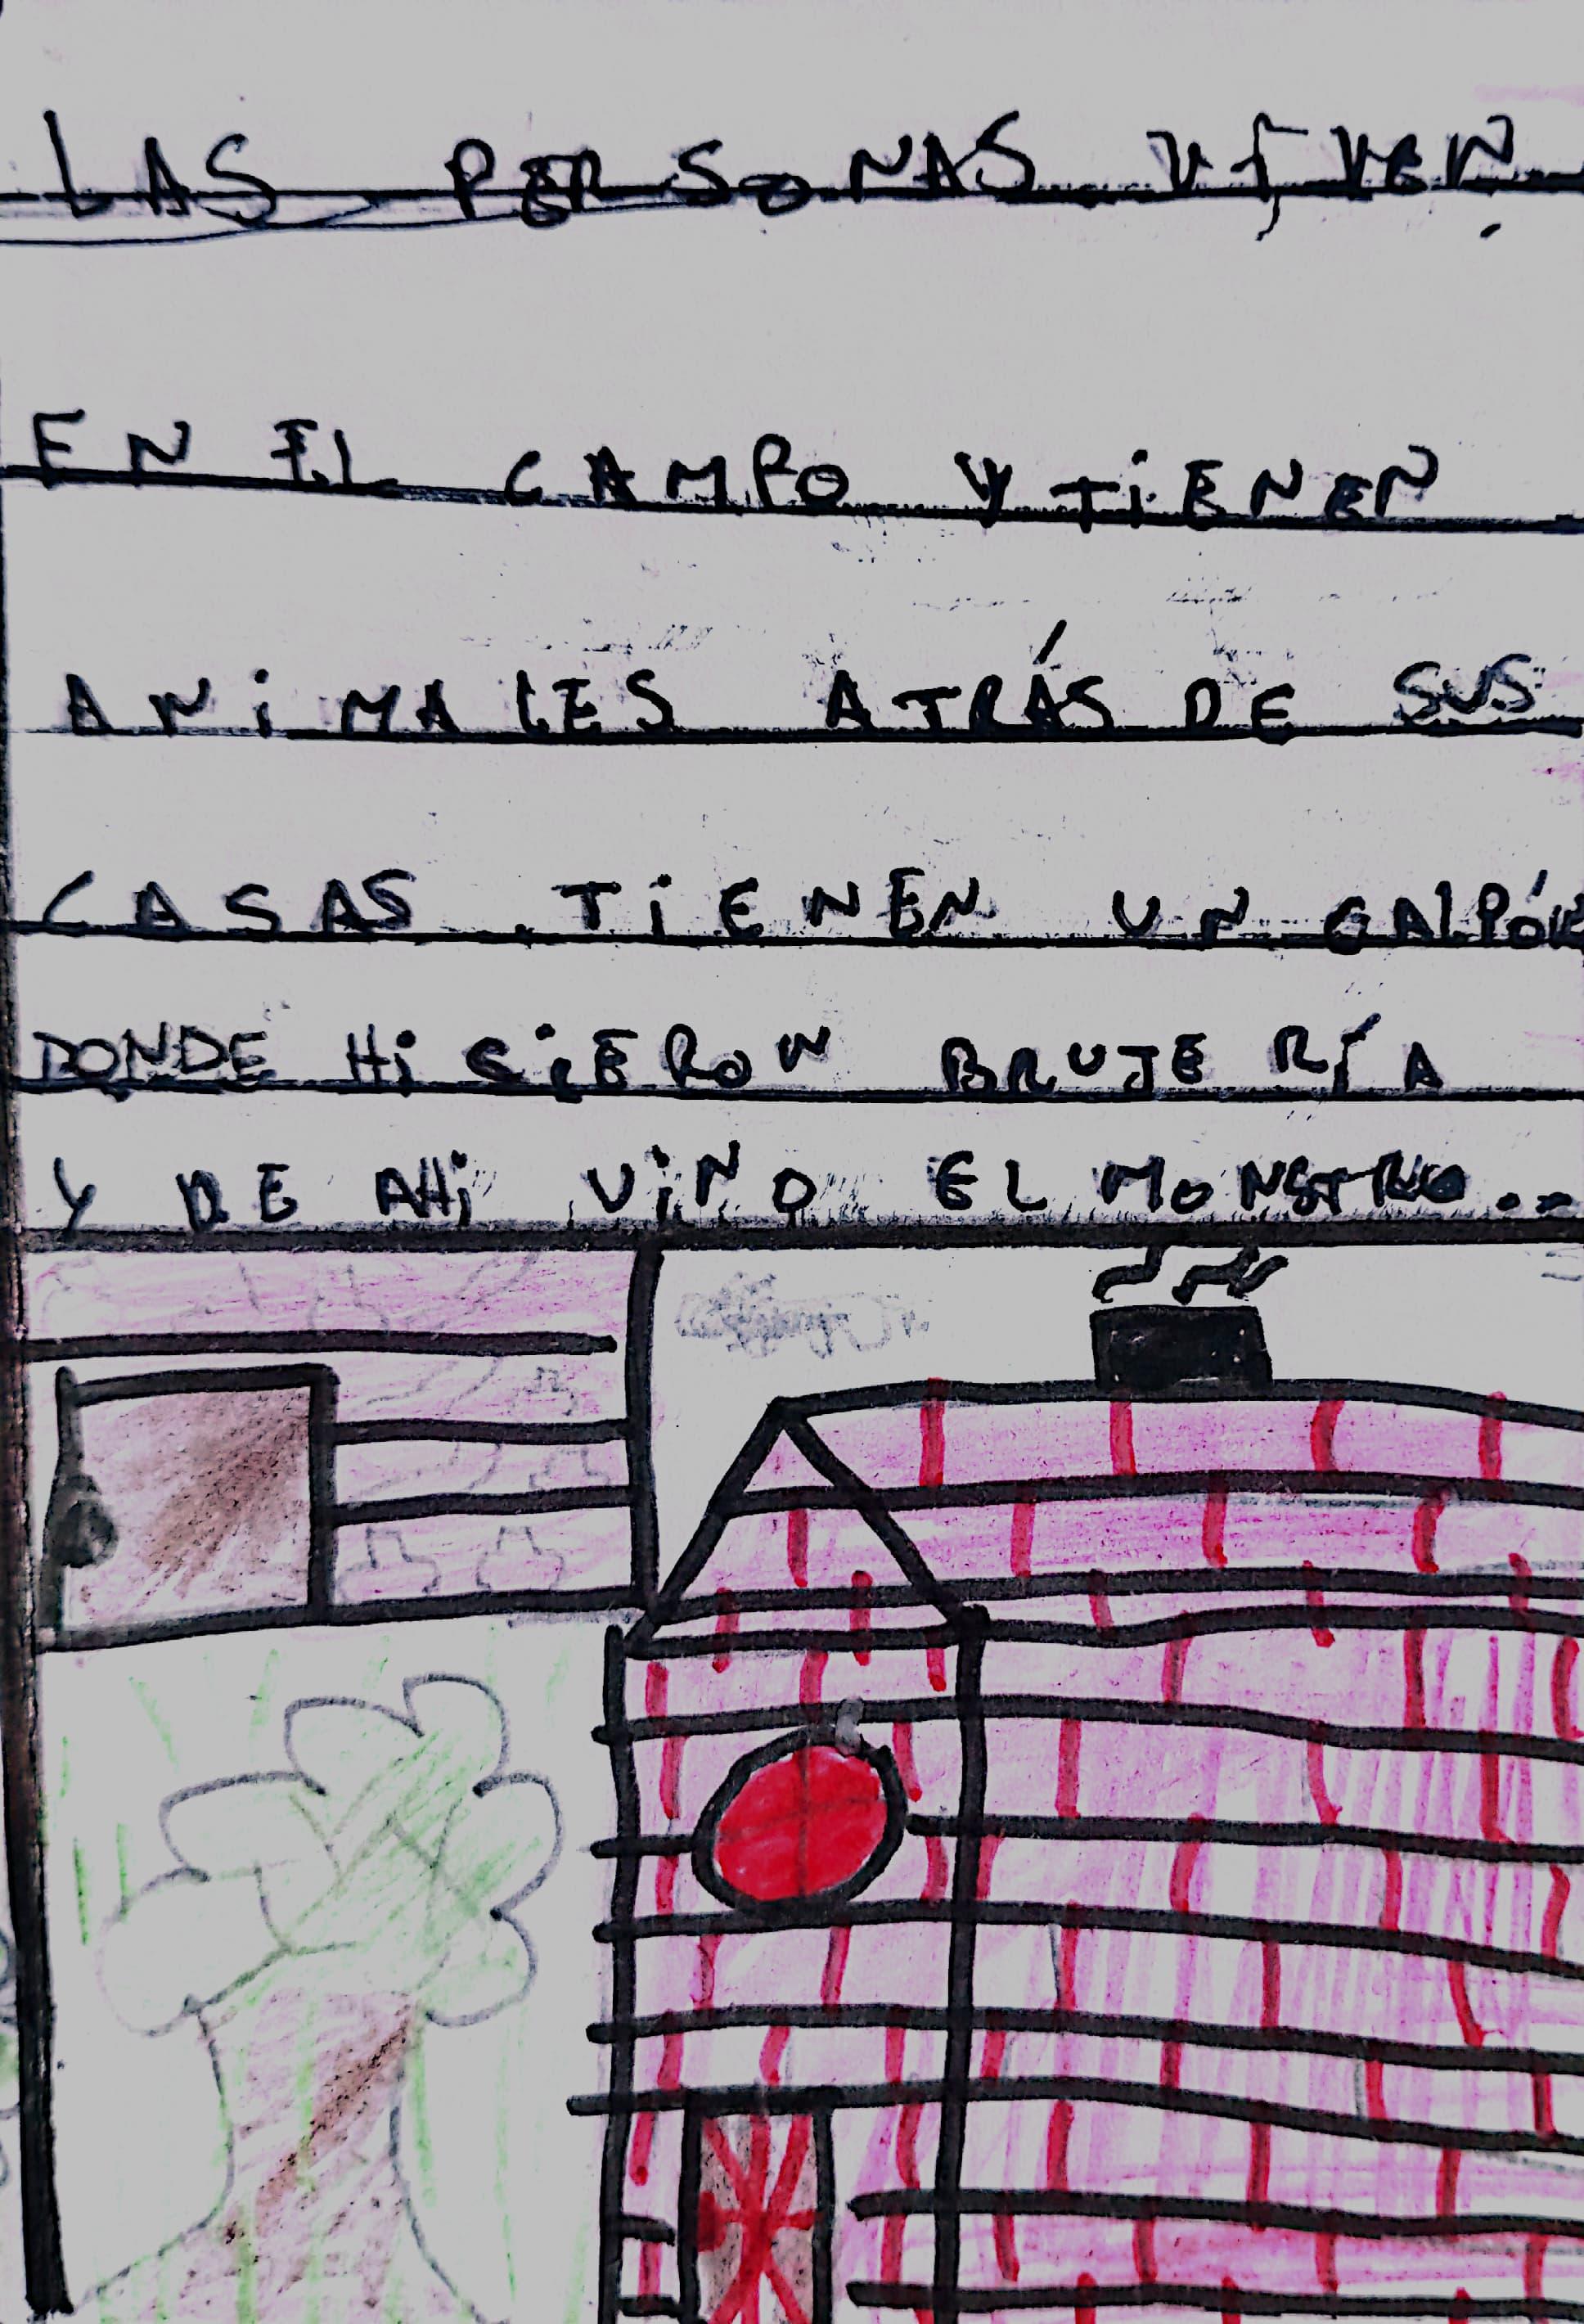 LAS PERSONAS VIVEN
EN EL CAMPO Y TIENEN
ANIMALES ATRÁS DE SUS
CASAS. TIENEN UN GALPÓN
DONDE HiCiERON BRUJERÍA
Y DE AHi ViNO EL MONSTRUO..